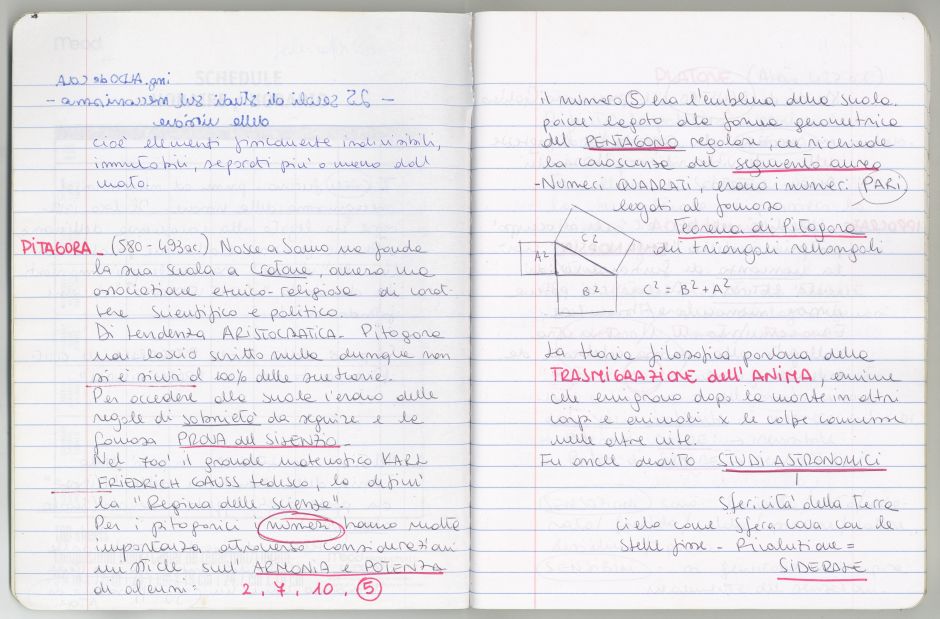 ing. ALDO de COLA
- 25 secoli di studi sul meccanicismo -
della visione
cioè elementi fisicamente indivisibili,
immutabili, separati più o meno dal
moto.
PITAGORA - (580 - 493 ac.) Nasce a Samo ma fonda
la sua scuola a Crotone, ovvero una
associazione etnico-religiosa di carat
tere scientifico e politico.
Di tendenza ARISTOCRATICA - Pitagora
non lasciò scritto nulla dunque non
si è sicuri al 100% delle sue teorie.
Per accedere alla scuola c'erano delle
regole di sobrietà da seguire e la
famosa PROVA del SILENZIO -
Nel 700' il grande matematico KARL
FRIEDRICH GAUSS tedesco, la definì
la "Regina delle Scienze".
Per i pitagorici i numeri hanno molta
importanza attraverso considerazioni
mistiche sull'ARMONIA e POTENZA
di alcuni: 2, 7, 10, 5
il numero 5 era l'emblema della scuola.
poiché legato alla forma geometrica
del PENTAGONO regolare, che richiede
la conoscenza del segmento aureo
- Numeri QUADRATI, erano i numeri PARI
legati al famoso
Teorema di Pitagora
dei triangoli rettangoli
C²
A²
B²
C² = B² + A²
La teoria filosofica parlava della
TRASMIGRAZIONE dell'ANIMA, anime
che emigrano dopo la morte in altri
corpi e animali x le colpe commesse
nelle altre vite.
Fu anche dedito STUDI ASTRONOMICI
Sfericità della Terra
cielo come Sfera cava con le
stelle fisse - Rivoluzione =
SIDERALE